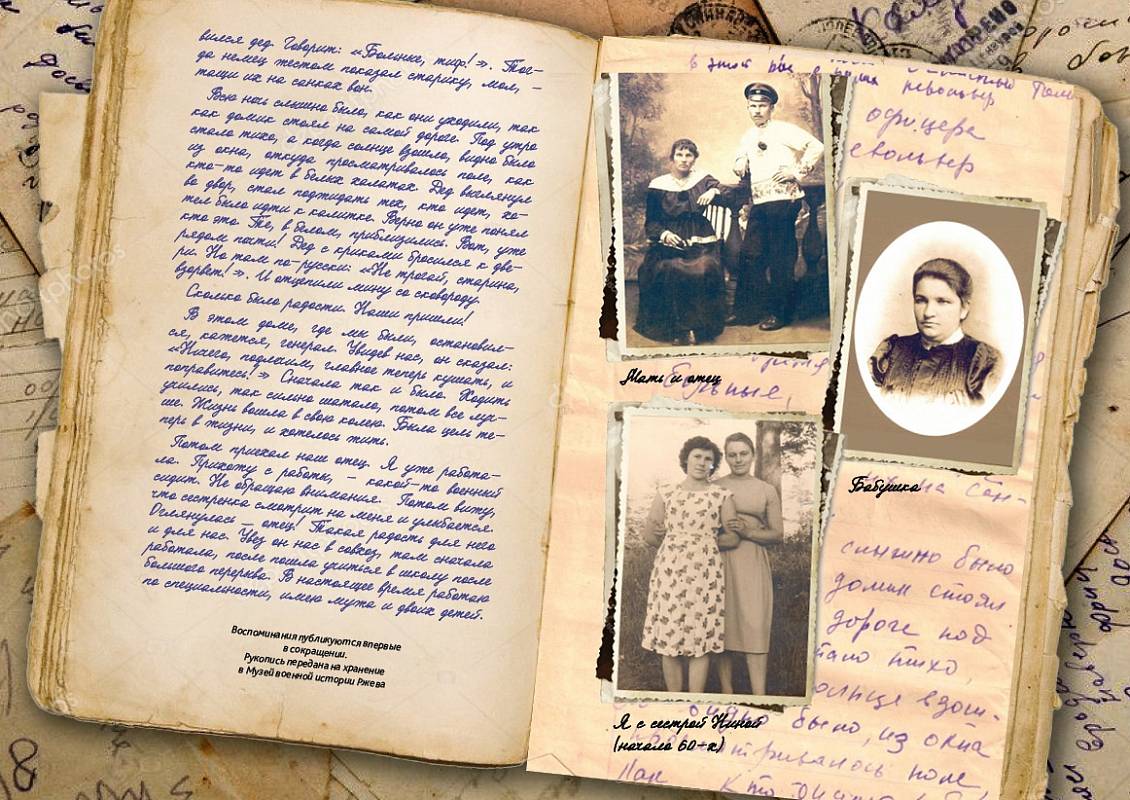 вился дед. Говорит: «Больные, тиф!». Тог-
да немец жестом показал старику, мол, –
тащи их на санках вон.
Всю ночь слышно было, как они уходили, так
как домик стоял на самой дороге. Под утро
стало тихо, а когда солнце взошло, видно было
из окна, откуда просматривалось поле, как
кто-то идет в белых халатах. Дед выглянул
во двор, стал поджидать тех, кто идет, хо-
тел было идти к калитке. Верно он уже понял
кто это. Те, в белом, приблизились. Вот, уже
рядом почти! Дед с криками бросился к две-
ри. Но там по-русски: «Не трогай, старина,
взорвет!». И отцепили мину со сковороду.
Сколько было радости. Наши пришли!
В этом доме, где мы были, остановил-
ся, кажется, генерал. Увидев нас, он сказал:
«Ничего, подлечим, главное теперь кушать, и
поправитесь!» Сначала так и было. Ходить
учились, так сильно шатало, потом все луч-
ше. Жизнь вошла в свою колею. Была цель те-
перь в жизни, и хотелось жить.
Потом приехал наш отец. Я уже работа-
ла. Прихожу с работы, – какой-то военный
сидит. Не обращаю внимания. Потом вижу,
что сестренка смотрит на меня и улыбается.
Оглянулась – отец! Такая радость для него
и для нас. Увез он нас в совхоз, там сначала
работала, после пошла учиться в школу после
большого перерыва. В настоящее время работаю
по специальности, имею мужа и двоих детей.
Воспоминания публикуются впервые
в сокращении.
Рукопись передана на хранение
в Музей военной истории Ржева
в этой
револьвер
офицера
револьвер
Мать и отец
Больные,
Бабушка
слышно было
домик стоял
дороге под
стало тихо,
солнце взош-
Я с сестрой Ниной
(начало 60-х)
видно было, из окна
просматривалось поле
как кто